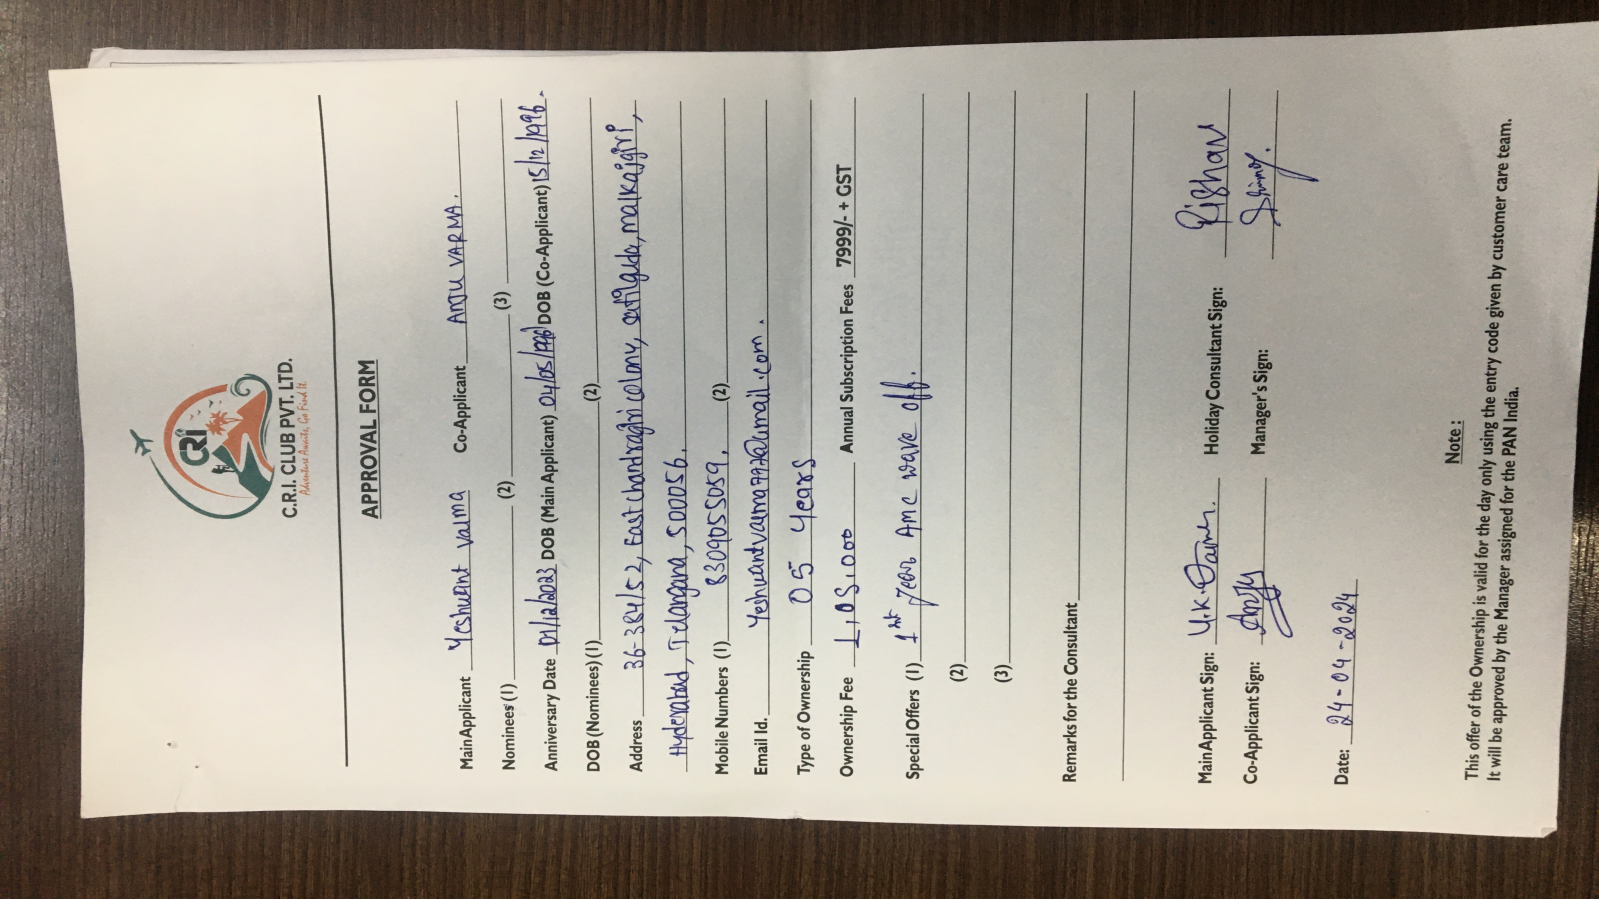 CRI
C.R.I. CLUB PVT. LTD.
Adventure Awaits, Go Find It.
APPROVAL FORM
Main Applicant Yeshwant Varma Co-Applicant ANJU VARMA.
Nominees (1) (2) (3)
Anniversary Date 01/12/2023 DOB (Main Applicant) 04/05/1996 DOB (Co-Applicant) 15/12/1996.
DOB (Nominees) (1) (2)
Address 36-384/52, East chandragiri colony, safilguda, malkajgiri,
Hyderabad, Telangana, 500056.
Mobile Numbers (1) 8309055059. (2)
Email Id. Yeshwantvarma797@Gmail.com.
Type of Ownership 05 Years
Ownership Fee 1,05,000 Annual Subscription Fees 7999/- + GST
Special Offers (1) 1st year AMC wave off.
(2)
(3)
Remarks for the Consultant
Main Applicant Sign: Y.K. Holiday Consultant Sign: Rishav
Co-Applicant Sign: Anju Manager's Sign:
Date: 24-04-2024
Note :
This offer of the Ownership is valid for the day only using the entry code given by customer care team.
It will be approved by the Manager assigned for the PAN India.